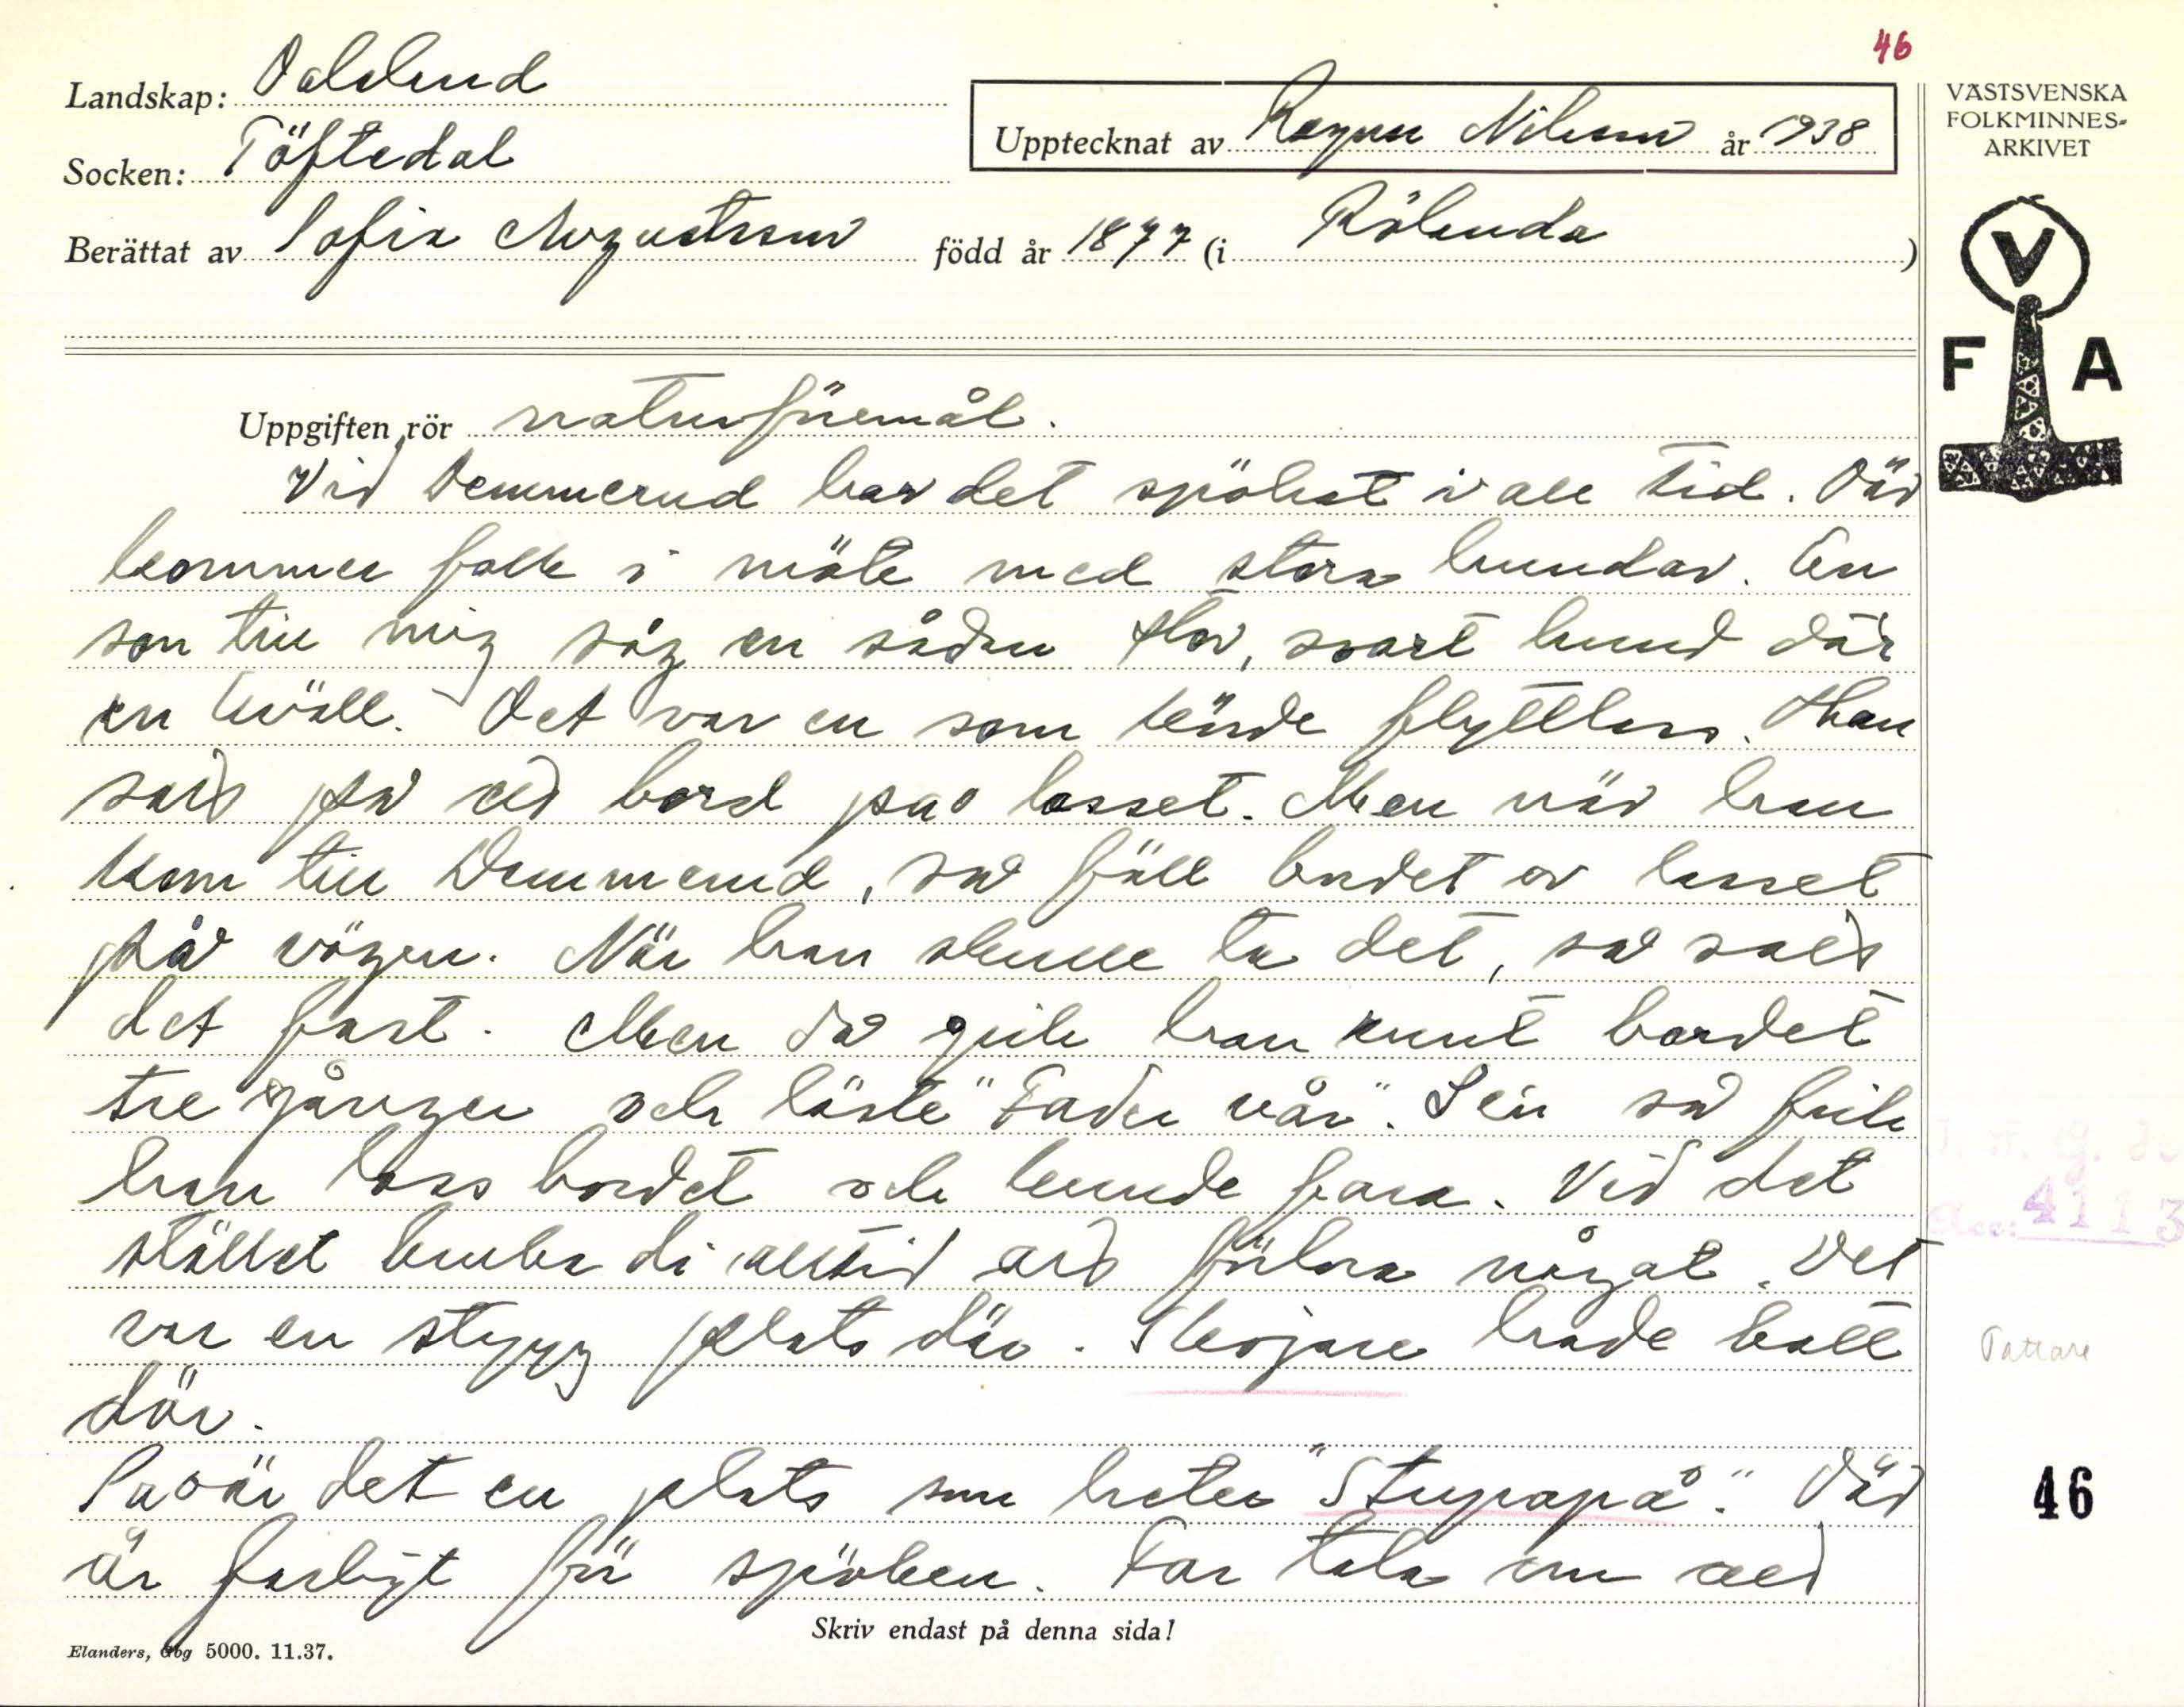 46
Landskap: Dalsland
Upptecknat av Ragnar Nilsson år 1938
Socken: Töftedal
Berättat av Sofia Augustsson född år 1877 (i Rölanda)
VÄSTSVENSKA
FOLKMINNES-
ARKIVET
V
F A
Uppgiften rör naturföremål.
Vid Demmerud har det spökat i all tid. Där
kommer folk i möte med stora hundar. En
son till mig såg en sådan stor, svart hund där
en kväll. Det var en som körde flyttlass. Han
satt på ett bord på lasset. Men när han
kom till Demmerud, så föll bordet av lasset
på vägen. När han skulle ta det, så satt
det fast. Men då gick han runt bordet
tre gånger och läste "Fader vår". Sen så fick
han loss bordet och kunde fara. Vid det
stället bruka di alltid att förlora något. Det
var en stygg plats där. Skojare hade hållt
där.
Så är det en plats som heter "Stupapå". Där
är farligt för spöken. Far tala om ett
4113
Tattare
46
Skriv endast på denna sida!
Elanders, Gbg 5000. 11.37.